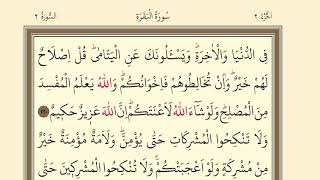 الجزء ٢ سورة البقرة السورة ٢
فِى الدُّنْيَا وَالْاٰخِرَةِۜ وَيَسْـَٔلُونَكَ عَنِ الْيَتَامٰىۜ قُلْ اِصْلَاحٌ
لَهُمْ خَيْرٌۜ وَاِنْ تُخَالِطُوهُمْ فَاِخْوَانُكُمْۜ وَاللّٰهُ يَعْلَمُ الْمُفْسِدَ
مِنَ الْمُصْلِحِۜ وَلَوْ شَٓاءَ اللّٰهُ لَاَعْنَتَكُمْۜ اِنَّ اللّٰهَ عَزٖيزٌ حَكٖيمٌ ٢٢٠
وَلَا تَنْكِحُوا الْمُشْرِكَاتِ حَتّٰى يُؤْمِنَّۜ وَلَاَمَةٌ مُؤْمِنَةٌ خَيْرٌ
مِنْ مُشْرِكَةٍ وَلَوْ اَعْجَبَتْكُمْۚ وَلَا تُنْكِحُوا الْمُشْرِكٖينَ حَتّٰى